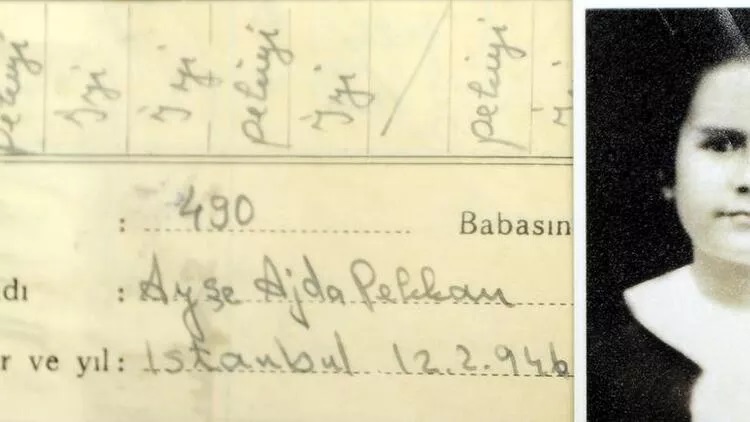 pekiyi İyi İyi pekiyi İyi / pekiyi
: 490 Babasın
dı : Ayşe Ajda Pekkan
r ve yıl: İstanbul 12.2.946